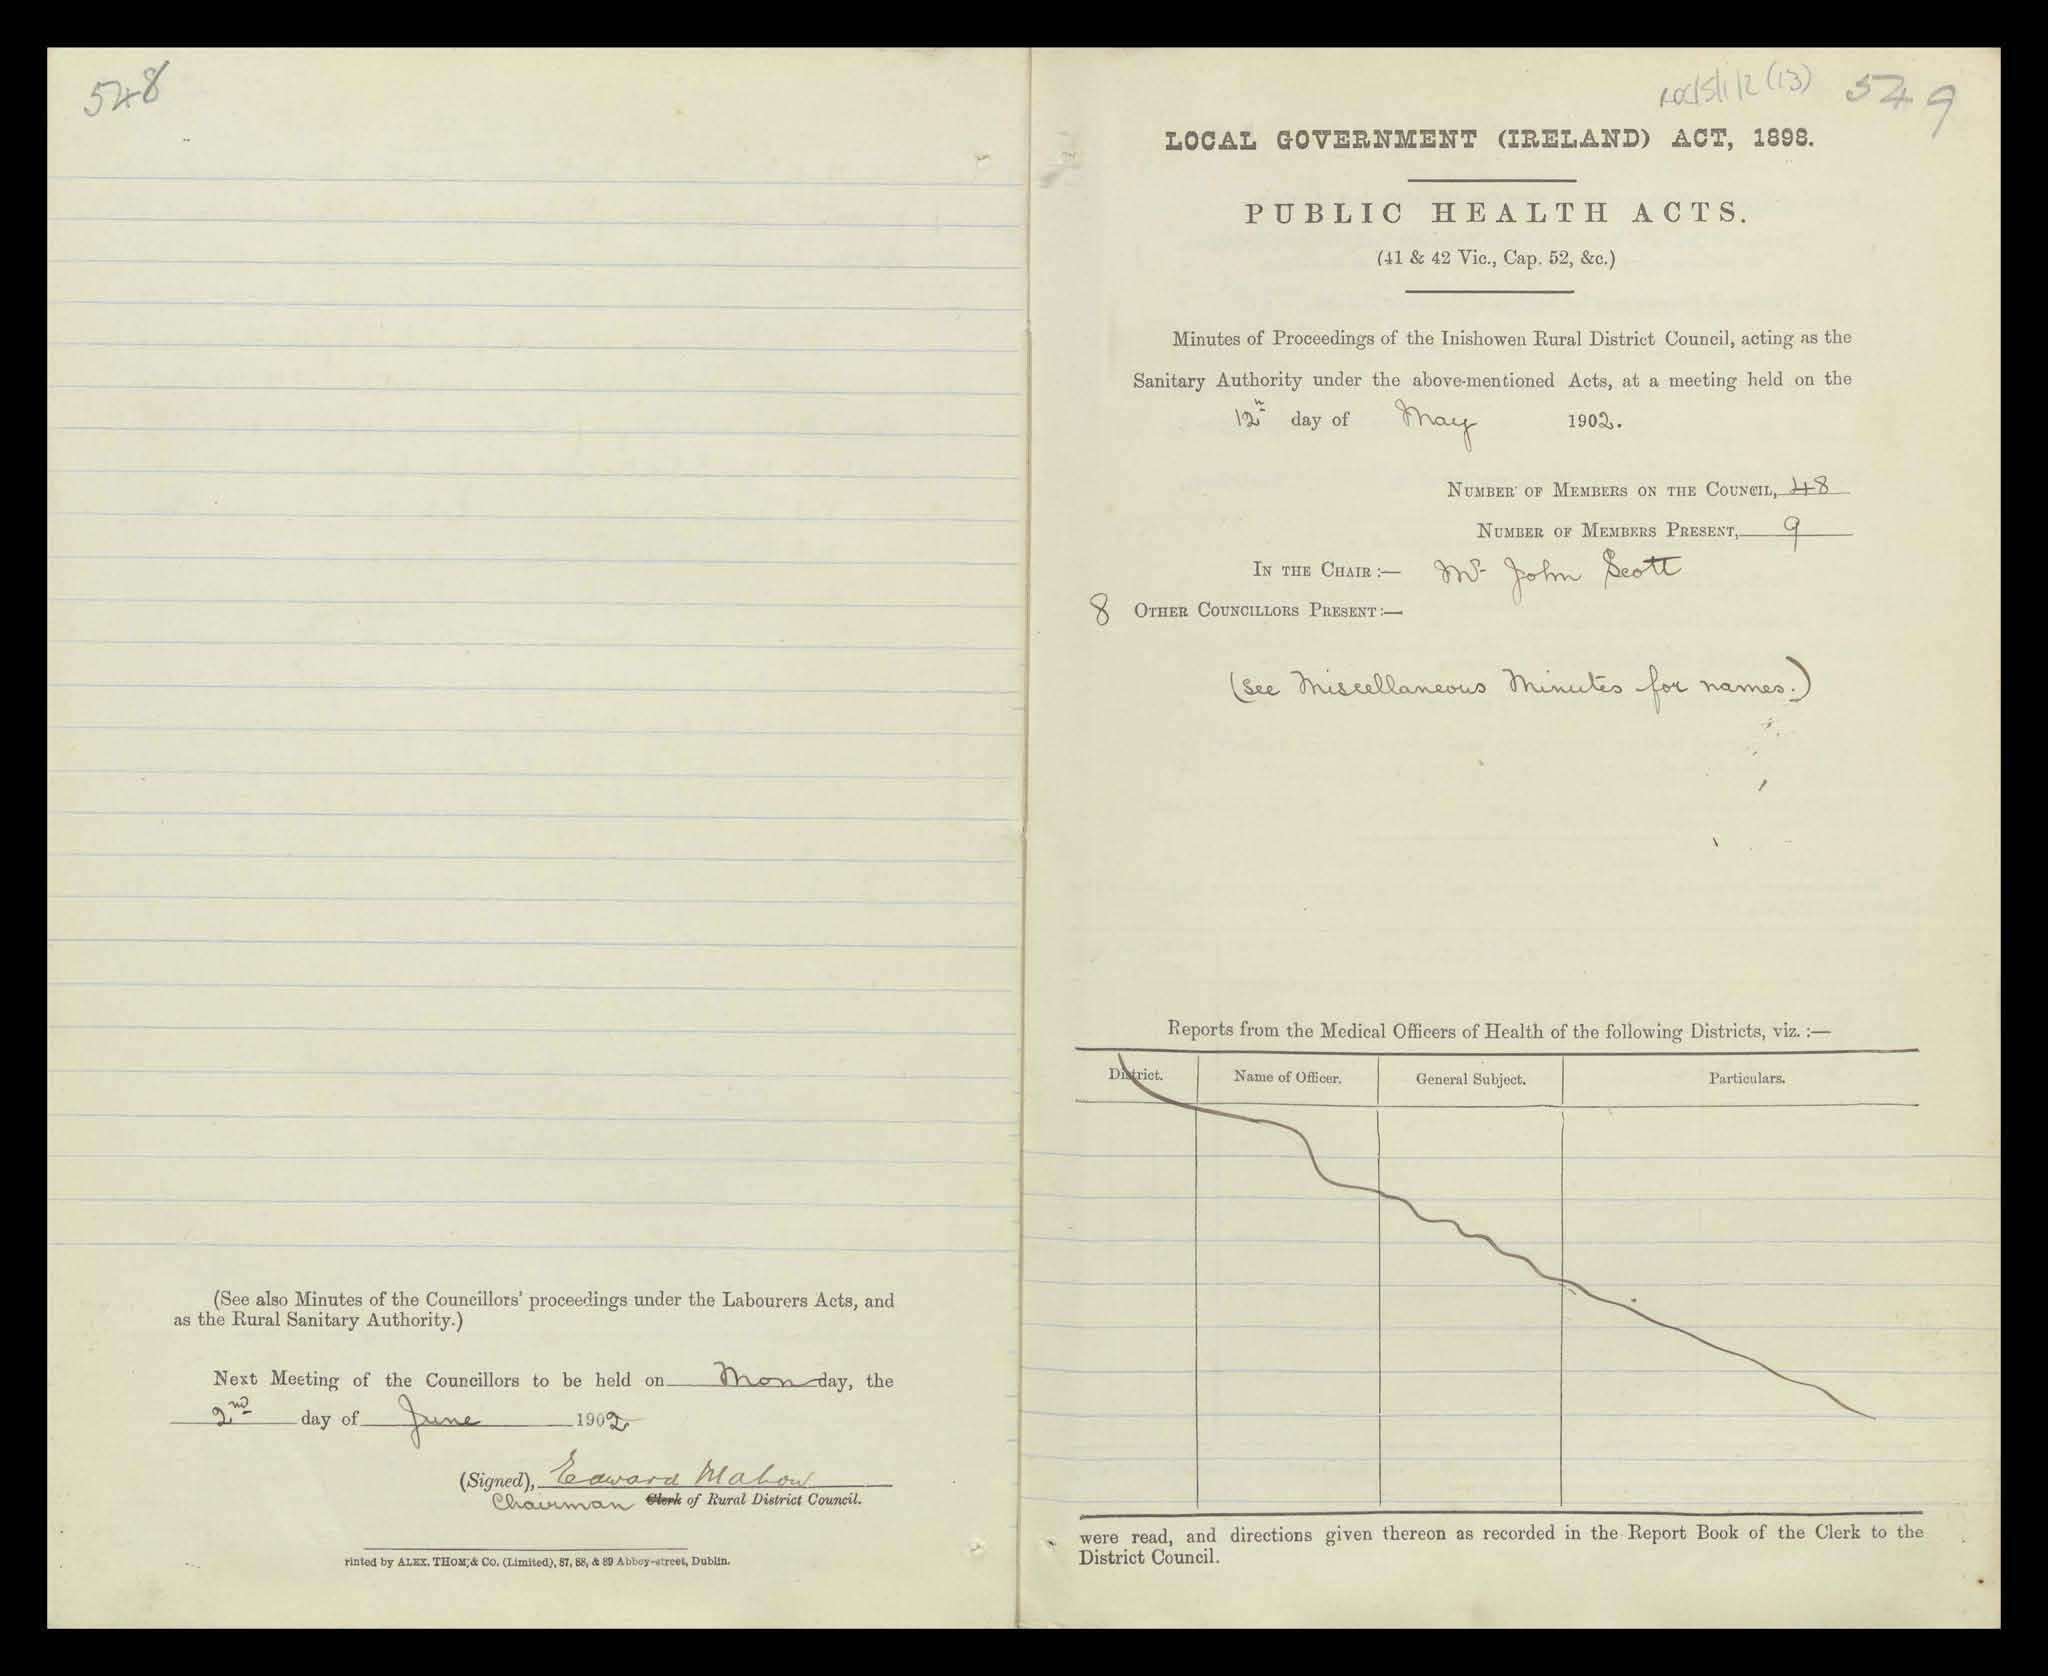 548
(See also Minutes of the Councillors' proceedings under the Labourers Acts, and
as the Rural Sanitary Authority.)
Next Meeting of the Councillors to be held on Monday, the
2nd day of June 1902
(Signed), Edward Mahon
Chairman Clerk of Rural District Council.
rinted by ALEX. THOM & CO. (Limited), 87, 88, & 89 Abbey-street, Dublin.
RDC/5/1/2 (13) 549
LOCAL GOVERNMENT (IRELAND) ACT, 1898.
PUBLIC HEALTH ACTS.
(41 & 42 Vic., Cap. 52, &c.)
Minutes of Proceedings of the Inishowen Rural District Council, acting as the
Sanitary Authority under the above-mentioned Acts, at a meeting held on the
12th day of May 1902.
NUMBER OF MEMBERS ON THE COUNCIL, 48
NUMBER OF MEMBERS PRESENT, 9
IN THE CHAIR:— Mr John Scott
8 OTHER COUNCILLORS PRESENT:—
(see Miscellaneous Minutes for names.)
Reports from the Medical Officers of Health of the following Districts, viz.:—
District. Name of Officer. General Subject. Particulars.
were read, and directions given thereon as recorded in the Report Book of the Clerk to the
District Council.